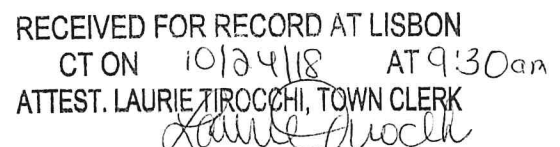 RECEIVED FOR RECORD AT LISBON
CT ON 10/24/18 AT 9:30am
ATTEST. LAURIE TIROCCHI, TOWN CLERK
Laurie Tirocchi